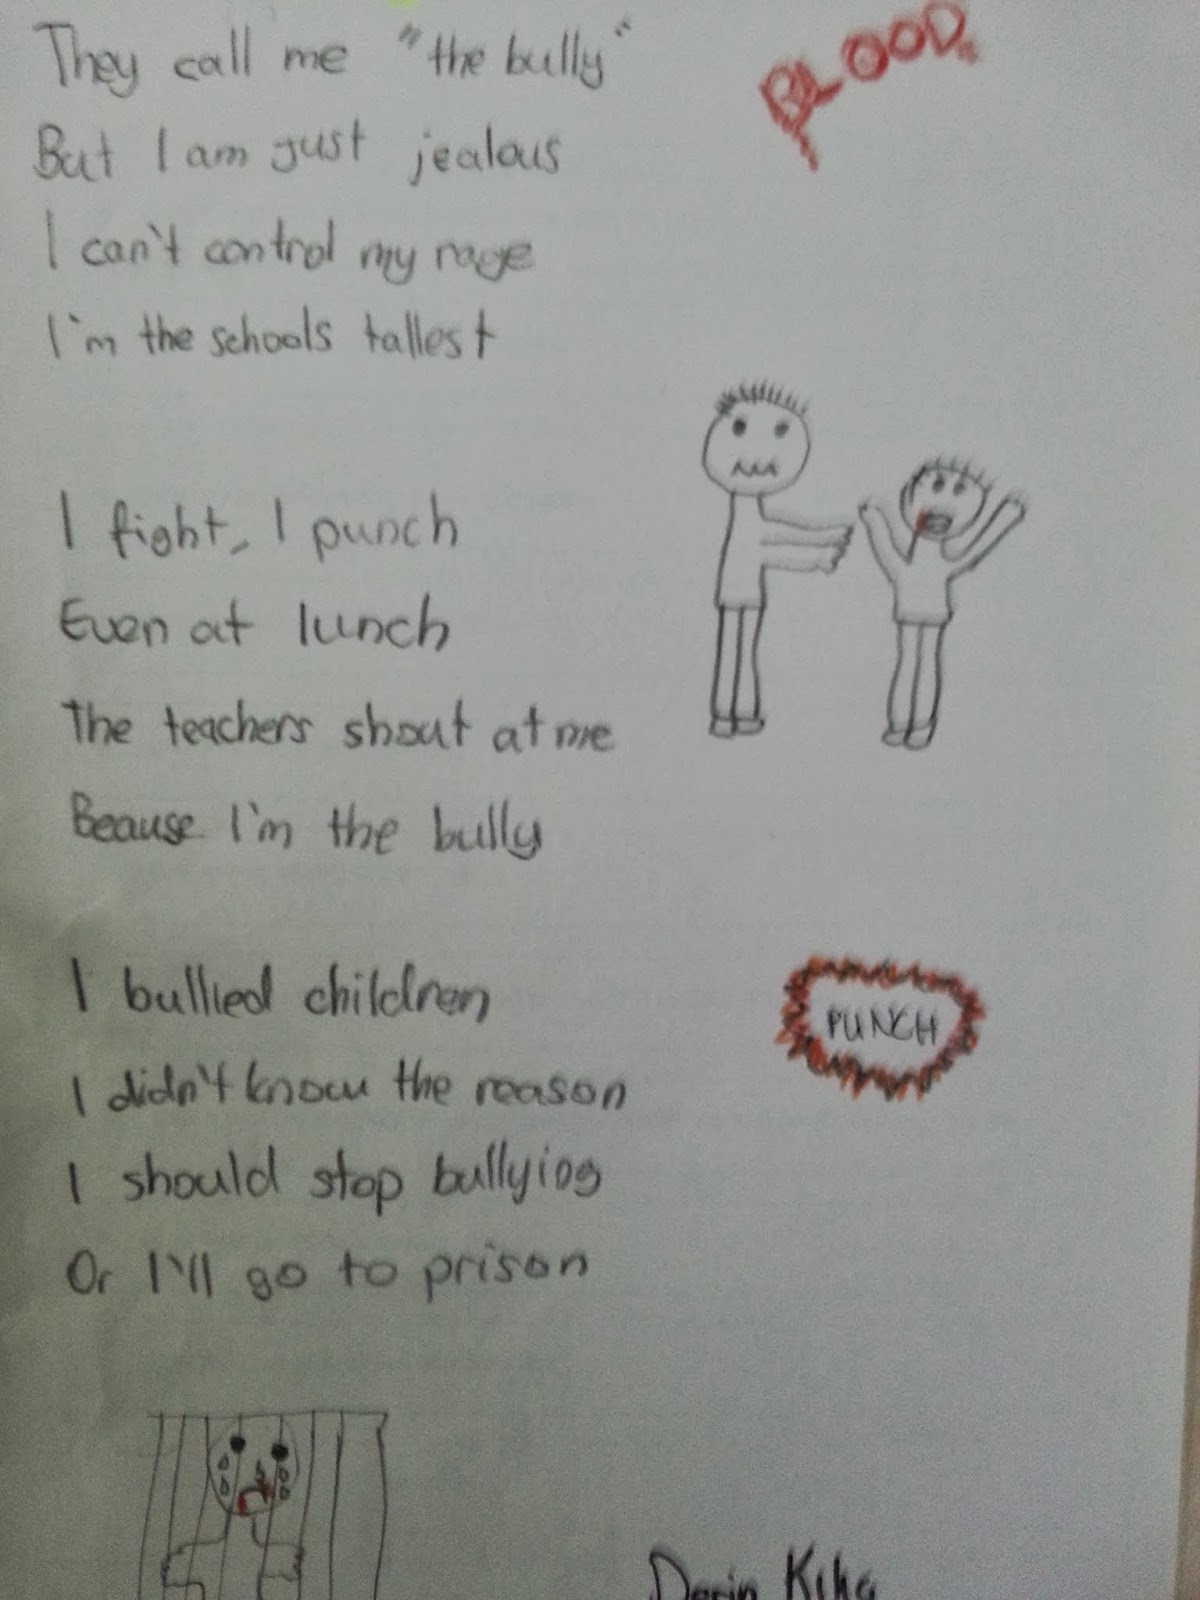 They call me "the bully"
BLOOD
But I am just jealous
I can't control my rage
I'm the schools tallest
I fight, I punch
Even at lunch
The teachers shout at me
Beause I'm the bully
I bullied children
PUNCH
I didn't know the reason
I should stop bullying
Or I'll go to prison